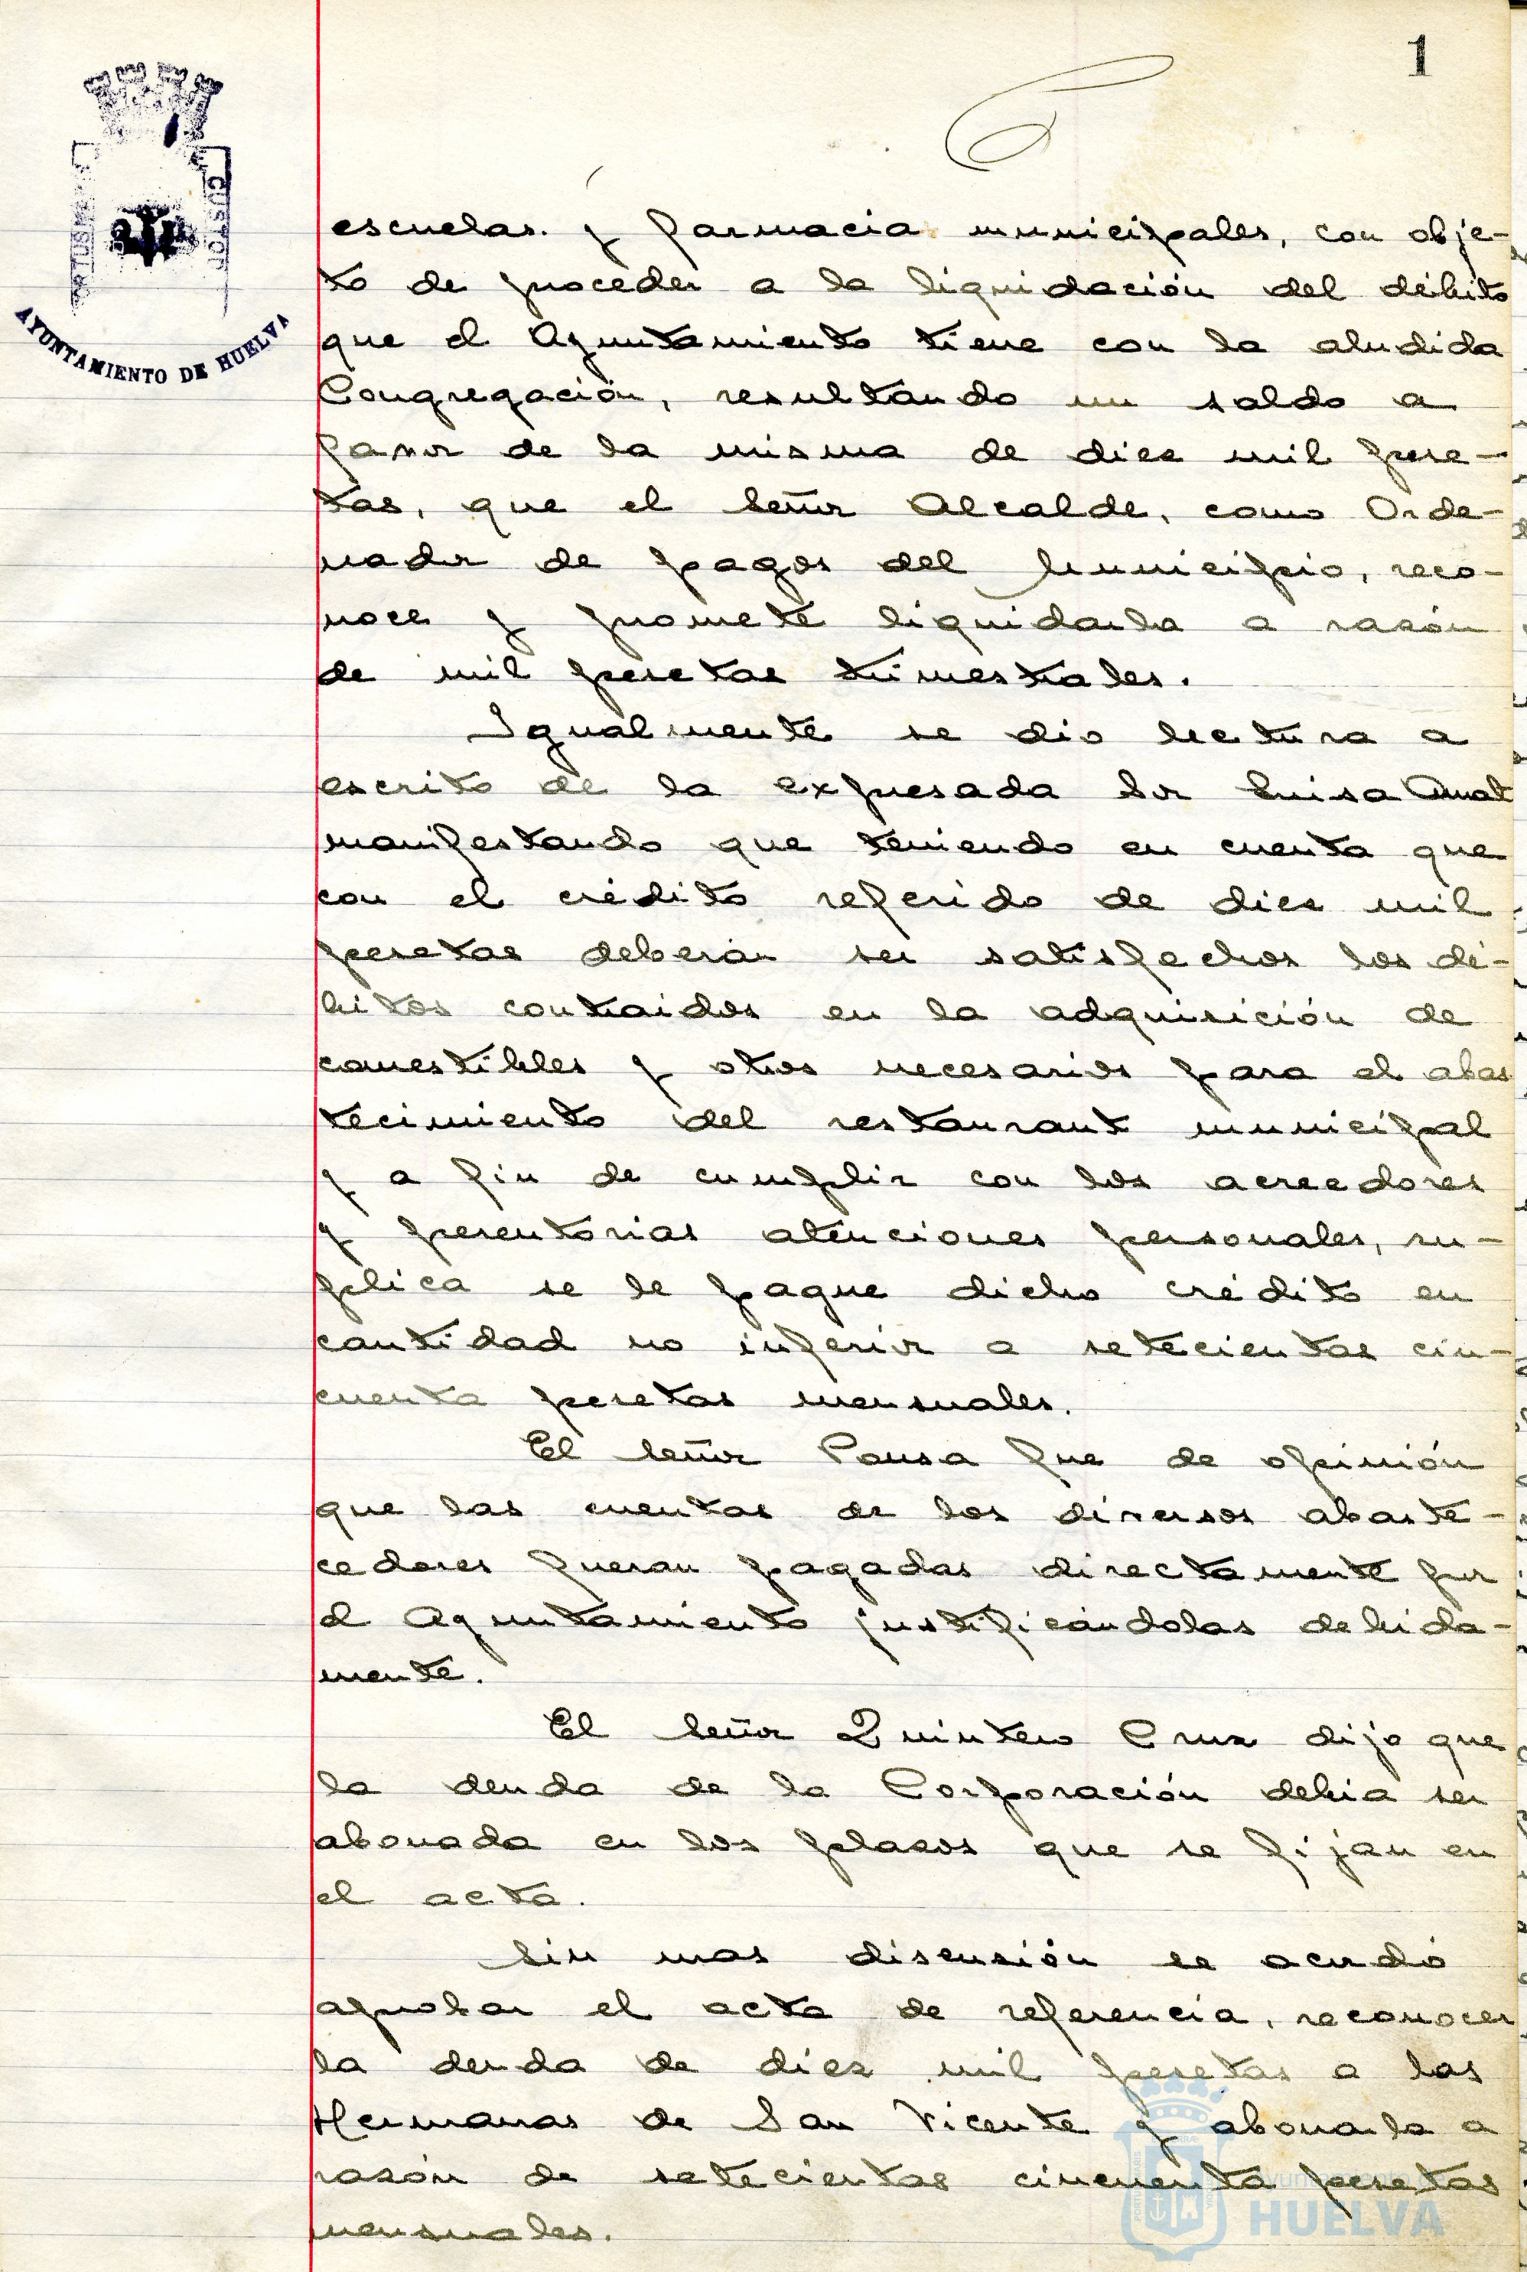 1
PORTUS MARIS
CUSTODIA
AYUNTAMIENTO DE HUELVA
escuelas y farmacia municipales, con obje-
to de proceder a la liquidación del débito
que el Ayuntamiento tiene con la aludida
Congregación, resultando un saldo a
favor de la misma de diez mil pese-
tas, que el Señor Alcalde, como Orde-
nador de pagos del Municipio, reco-
noce y promete liquidarla a razón
de mil pesetas trimestrales.
Igualmente se dio lectura a
escrito de la expresada Sor Luisa Amat
manifestando que teniendo en cuenta que
con el crédito referido de diez mil
pesetas deberán ser satisfechos los dé-
bitos contraidos en la adquisición de
comestibles y otros necesarios para el abas
tecimiento del restaurant municipal
y a fin de cumplir con los acreedores
y perentorias atenciones personales, su-
plica se le pague dicho crédito en
cantidad no inferior a setecientas cin-
cuenta pesetas mensuales.
El Señor Ponsa fue de opinión
que las cuentas de los diversos abaste-
cedores fueran pagadas directamente por
el Ayuntamiento justificándolas debida-
mente.
El Señor Quintero Cruz dijo que
la deuda de la Corporación debia ser
abonada en los plazos que se fijan en
el acta.
Sin mas discusión se acordó
aprobar el acta de referencia, reconocer
la deuda de diez mil pesetas a las
Hermanas de San Vicente y abonarla a
razón de setecientas cincuenta pesetas
mensuales.
Ayuntamiento de
HUELVA